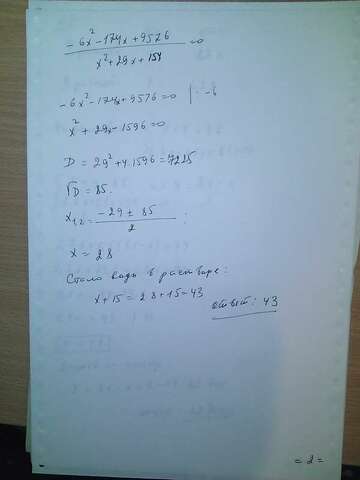 -6x²-174x+9576 / x²+29x+154 =0
-6x²-174x+9576=0 | : -6
x²+29x-1596=0
D = 29²+4.1596=7225
√D = 85.
x₁,₂= -29 ± 85 / 2 ;
x = 28
Стало воды в растворе:
x+15 = 28+15=43
ответ: 43
= 2 =